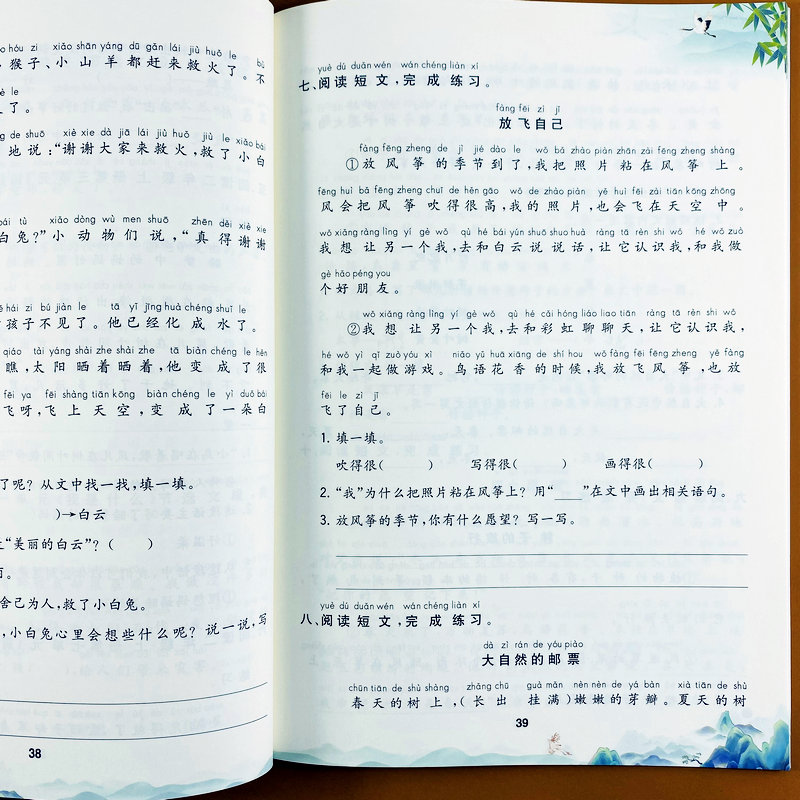 hóu zi xiǎo shān yáng dū gǎn lái jiù huǒ le bù
猴子、小山羊都赶来救火了。不
le
了。
de shuō xiè xie dà jiā lái jiù huǒ jiù le xiǎo bái
地说：“谢谢大家来救火，救了小白
tù xiǎo dòng wù men shuō zhēn děi xiè xie
白兔？”小动物们说，“真得谢谢
hái zi bú jiàn le tā yǐ jīng huà chéng shuǐ le
孩子不见了。他已经化成水了。
qiáo tài yáng shài zhe shài zhe tā biàn chéng le hěn
瞧，太阳晒着晒着，他变成了很
fēi ya fēi shàng tiān kōng biàn chéng le yì duǒ bái
飞呀，飞上天空，变成了一朵白
了呢？从文中找一找，填一填。
)→白云
“美丽的白云”？(  )
舍己为人，救了小白兔。
，小白兔心里会想些什么呢？说一说，写
38
yuè dú duǎn wén wán chéng liàn xí
七、阅读短文，完成练习。
fàng fēi zì jǐ
放飞自己
fàng fēng zheng de jì jié dào le wǒ bǎ zhào piàn zhān zài fēng zheng shàng
①放风筝的季节到了，我把照片粘在风筝上。
fēng huì bǎ fēng zheng chuī de hěn gāo wǒ de zhào piàn yě huì fēi zài tiān kōng zhōng
风会把风筝吹得很高，我的照片，也会飞在天空中。
wǒ xiǎng ràng lìng yí gè wǒ qù hé bái yún shuō shuo huà ràng tā rèn shi wǒ hé wǒ zuò
我想让另一个我，去和白云说说话，让它认识我，和我做
gè hǎo péng you
个好朋友。
wǒ xiǎng ràng lìng yí gè wǒ qù hé cǎi hóng liáo liao tiān ràng tā rèn shi wǒ
②我想让另一个我，去和彩虹聊聊天，让它认识我，
hé wǒ yì qǐ zuò yóu xì niǎo yǔ huā xiāng de shí hou wǒ fàng fēi fēng zheng yě fàng
和我一起做游戏。鸟语花香的时候，我放飞风筝，也放
fēi le zì jǐ
飞了自己。
1. 填一填。
吹得很(  ) 写得很(  ) 画得很(  )
2. “我”为什么把照片粘在风筝上？用“____”在文中画出相关语句。
3. 放风筝的季节，你有什么愿望？写一写。
yuè dú duǎn wén wán chéng liàn xí
八、阅读短文，完成练习。
dà zì rán de yóu piào
大自然的邮票
chūn tiān de shù shàng zhǎng chū guà mǎn nèn nèn de yá bàn xià tiān de shù
春天的树上，(长出 挂满)嫩嫩的芽瓣。夏天的树
39